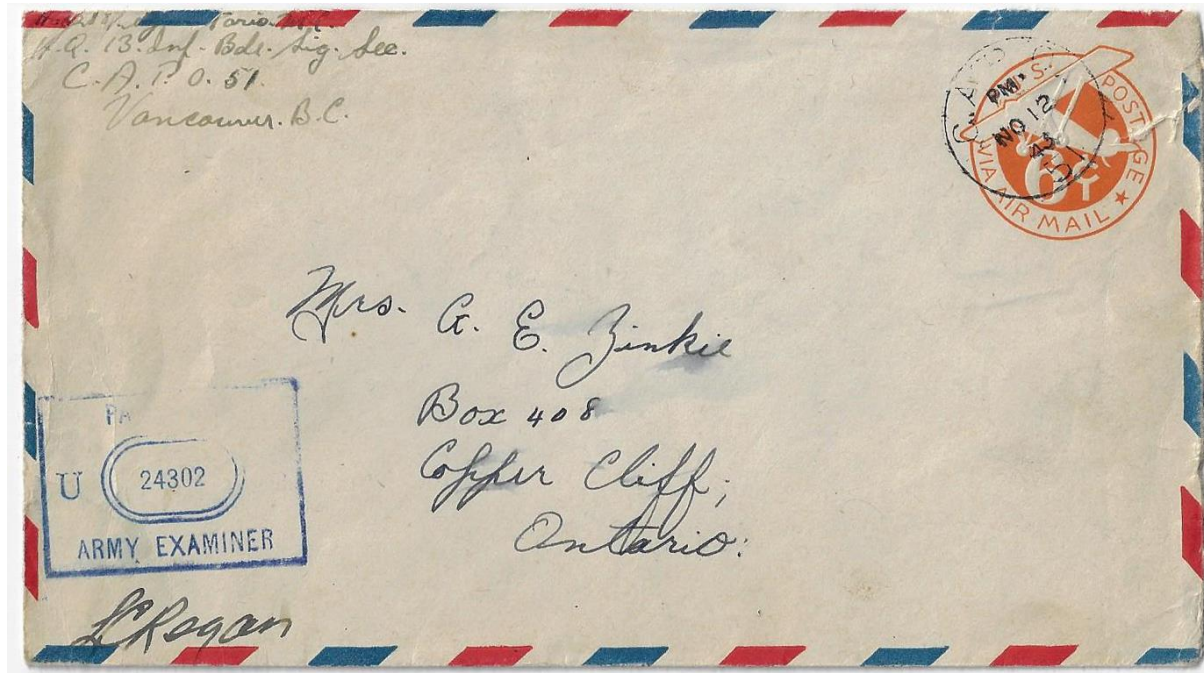 H.Q. 13. Inf. Bde. Sig. Sec.
C.A.P.O. 51.
Vancouver. B.C.
C.A.P.O. 51
PM
NO 12
43
U.S. POSTAGE
6¢
VIA AIR MAIL
Mrs. G. E. Zinkie
Box 408
Copper Cliff,
Ontario.
PA
U 24302
ARMY EXAMINER
LCRogan